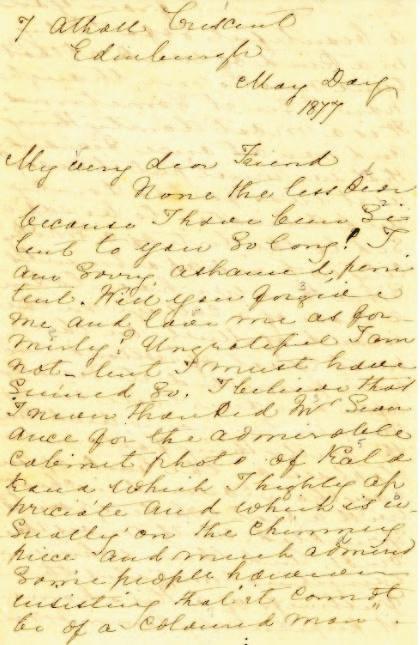 7 Atholl Crescent
Edinburgh
May Day
1877
My very dear Friend
None the less dear
because I have been Si
lent to you So long! I
am Sorry, ashamed, peni
tent. Will you forgive
me and love me as for
merly? Ungrateful I am
not - but I must have
Seemed So. I believe that
I never thanked Mr Sean
ance for the admirable
Cabinet photo of
which I highly ap
preciate and which is u
Sually on the Chimney
piece and much admired
Some people however
insisting that "it cannot
be of a Coloured man".